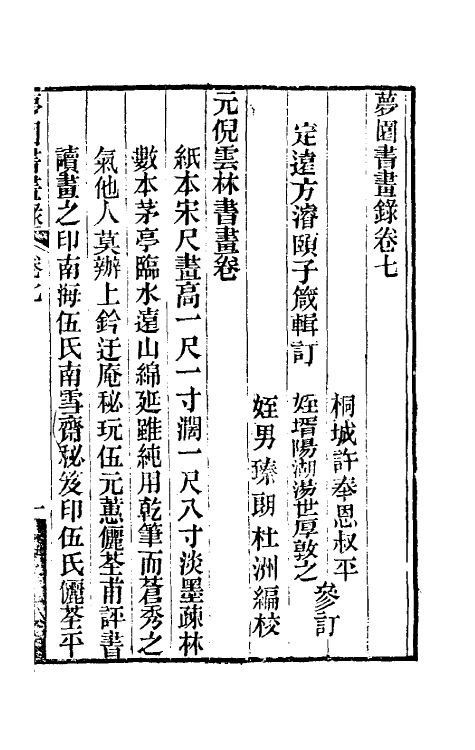 夢園書畫錄卷七
桐城許奉恩叔平
定遠方濬頤子箴輯訂
姪壻陽湖湯世厚敦之
參訂
姪男臻朗杜洲編校
元倪雲林書畫卷
紙本宋尺畫高一尺一寸濶一尺八寸淡墨疎林
數本茅亭臨水遠山綿延雖純用乾筆而蒼秀之
氣他人莫辦上鈐迂庵秘玩伍元蕙儷荃甫評書
讀畫之印南海伍氏南雪齋秘笈印伍氏儷荃平
夢園書畫錄
卷七
一